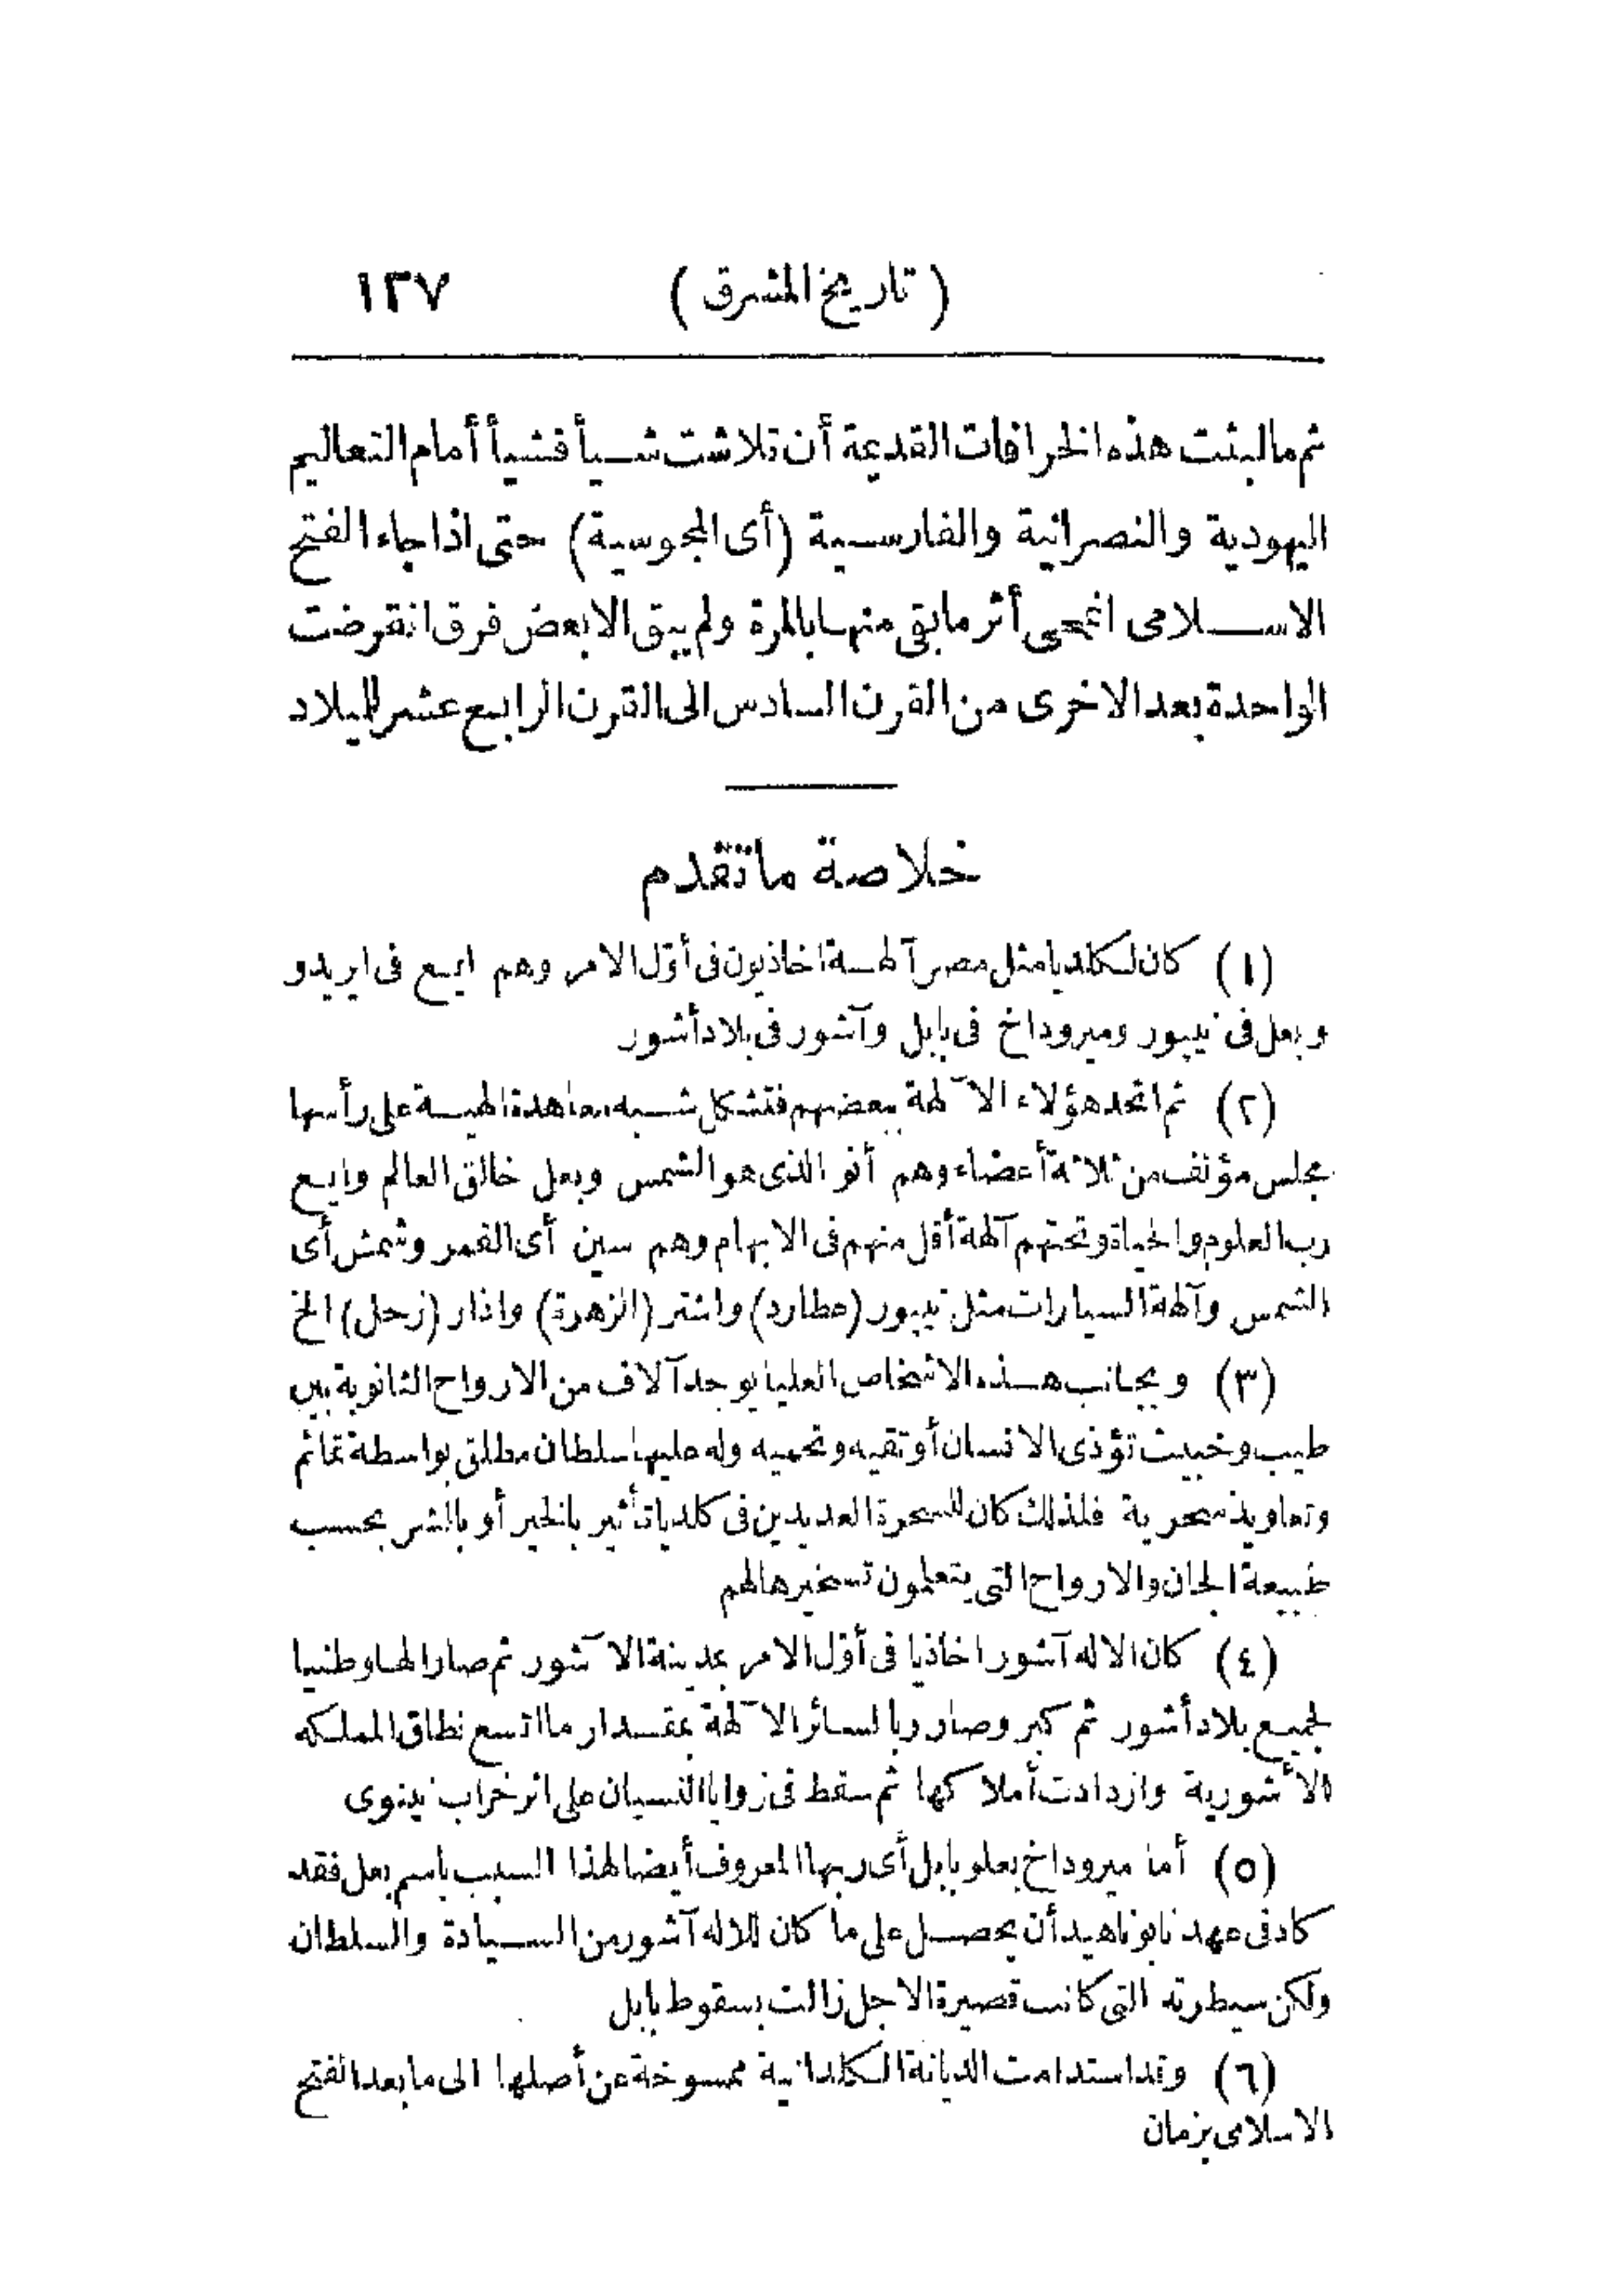 ( تاريخ المشرق ) ١٣٧
ثم ما لبثت هذه الخرافات القديمة أن تلاشت شيأ فشيأ أمام التعاليم
اليهودية والنصرانية والفارسية (أى المجوسية) حتى اذا جاء الفتح
الاسلامى انمحى أثر ما بقى منها بالمرة ولم يبق الا بعض فرق انقرضت
الواحدة بعد الاخرى من القرن السادس الى القرن الرابع عشر للميلاد
خلاصة ما تقدم
(١) كان لكلديا مثل مصر آلهة اخاذيون فى أوّل الامر وهم ايع فى ايريدو
وبعل فى نيبور وميروداخ فى بابل وآشور فى بلاد أشور
(٢) ثم اتحد هؤلاء الآلهة ببعضهم فتشكل شبه معاهدة الهية على رأسها
مجلس مؤلف من ثلاثة أعضاء وهم أنو الذى هو الشمس وبعل خالق العالم وايع
رب العلوم والحياة وتحتهم آلهة أقل منهم فى الابهام وهم سين أى القمر وشمش أى
الشمس وآلهة السيارات مثل نيبور (عطارد) واشتر (الزهرة) واذار (زحل) الخ
(٣) وبجانب هذه الاشخاص العليا يوجد آلاف من الارواح الثانوية بين
طيب وخبيث تؤذى الانسان أو تقيه وتحميه وله عليها سلطان مطلق بواسطة تمائم
وتعاويذ سحرية فلذلك كان للسحرة العديدين فى كلديا تأثير بالخير أو بالشر بحسب
طبيعة الجان والارواح التى يتعلمون تسخيرها لهم
(٤) كان الاله آشور اخاذيا فى أوّل الامر بمدينة الآشور ثم صار الها وطنيا
لجميع بلاد أشور ثم كبر وصار ربا لسائر الآلهة بمقدار ما اتسع نطاق المملكه
الأشورية وازدادت أملاكها ثم سقط فى زوايا النسيان على اثر خراب نينوى
(٥) أما ميروداخ بعلو بابل أى ربها المعروف أيضا لهذا السبب باسم بعل فقد
كاد فى عهد نابوناهيد أن يحصل على ما كان للاله آشور من السيادة والسلطان
ولكن سيطرته التى كانت قصيرة الاجل زالت بسقوط بابل
(٦) وقد استدامت الديانة الكلدانية ممسوخة عن أصلها الى ما بعد الفتح
الاسلامى بزمان